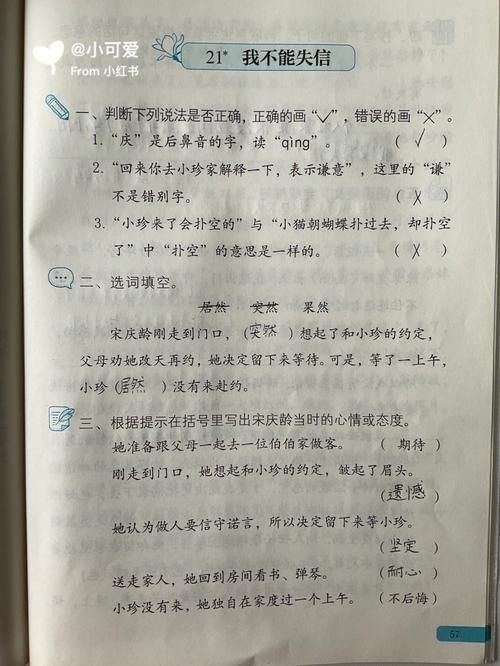 @小可爱
From 小红书
21* 我不能失信
一、判断下列说法是否正确，正确的画“√”，错误的画“×”。
1. “庆”是后鼻音的字，读“qìng”。 （ √ ）
2. “回来你去小珍家解释一下，表示谦意”，这里的“谦”
不是错别字。 （ × ）
3. “小珍来了会扑空的”与“小猫朝蝴蝶扑过去，却扑空
了”中“扑空”的意思是一样的。 （ × ）
二、选词填空。
居然 突然 果然
宋庆龄刚走到门口，（突然）想起了和小珍的约定，
父母劝她改天再约，她决定留下来等待。可是，等了一上午，
小珍（居然）没有来赴约。
三、根据提示在括号里写出宋庆龄当时的心情或态度。
她准备跟父母一起去一位伯伯家做客。 （ 期待 ）
刚走到门口，她想起和小珍的约定，皱起了眉头。
（遗憾）
她认为做人要信守诺言，所以决定留下来等小珍。
（坚定）
送走家人，她回到房间看书、弹琴。 （耐心）
小珍没有来，她独自在家度过一个上午。 （不后悔）
57